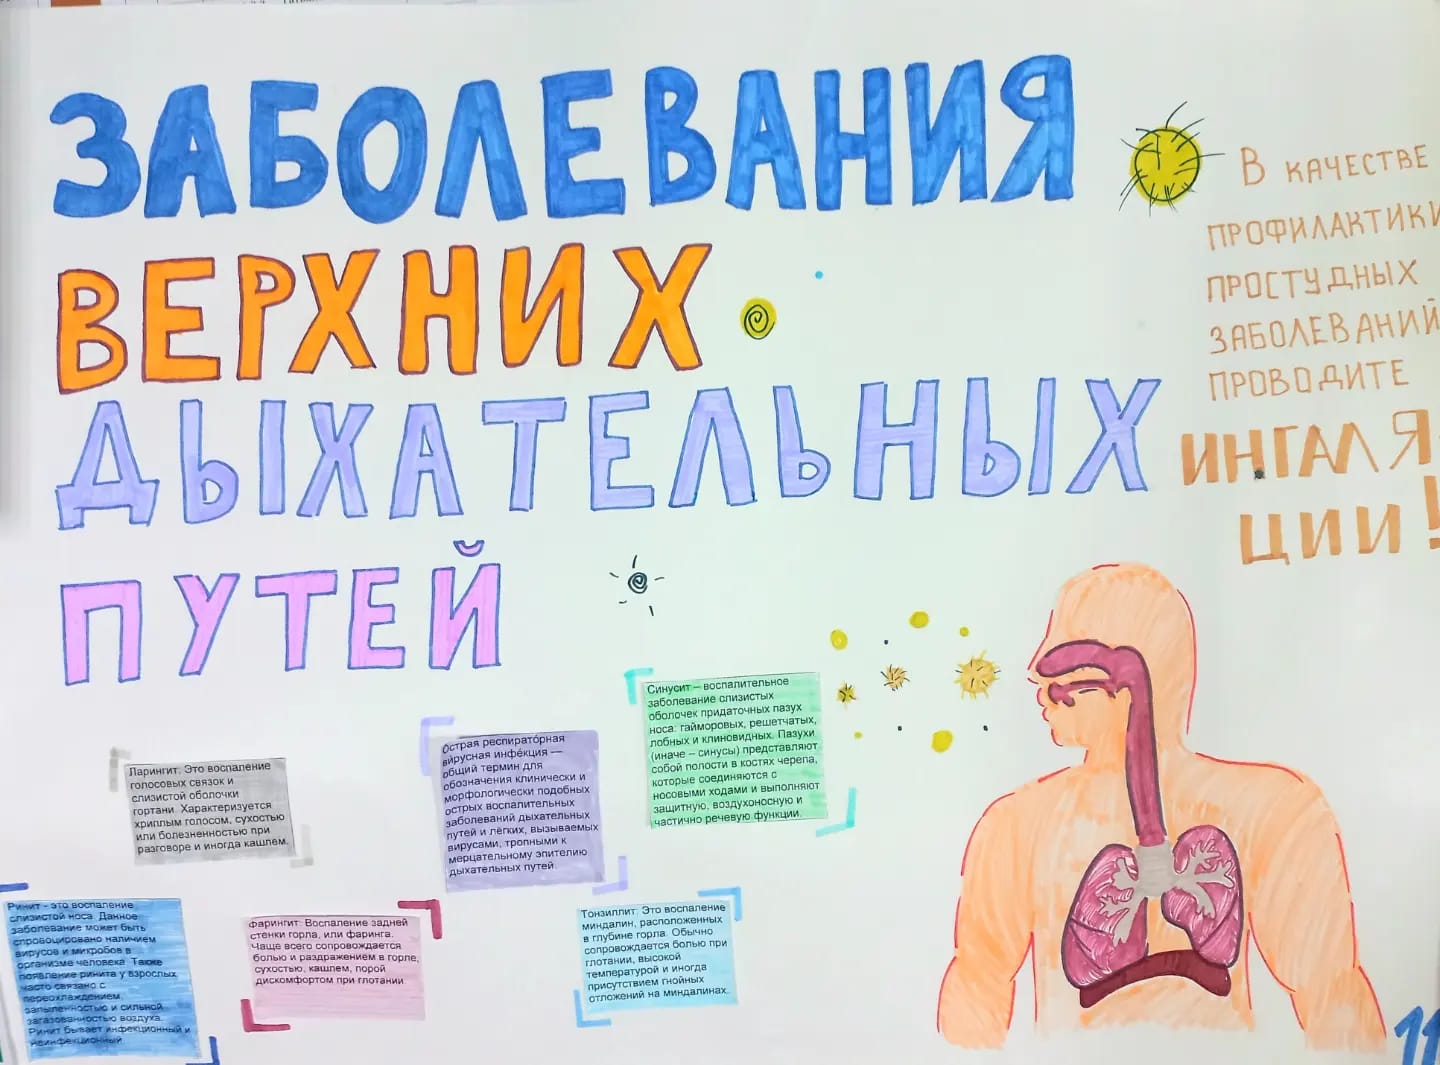 ЗАБОЛЕВАНИЯ
ВЕРХНИХ
ДЫХАТЕЛЬНЫХ
ПУТЕЙ
В КАЧЕСТВЕ
ПРОФИЛАКТИКИ
ПРОСТУДНЫХ
ЗАБОЛЕВАНИЙ
ПРОВОДИТЕ
ИНГАЛЯ-
ЦИИ!
Синусит – воспалительное
заболевание слизистых
оболочек придаточных пазух
носа: гайморовых, решетчатых,
лобных и клиновидных. Пазухи
(иначе – синусы) представляют
собой полости в костях черепа,
которые соединяются с
носовыми ходами и выполняют
защитную, воздухоносную и
частично речевую функции.
Острая респирато́рная
ви́русная инфе́кция —
общий термин для
обозначения клинически и
морфологически подобных
острых воспалительных
заболеваний дыхательных
путей и лёгких, вызываемых
вирусами, тропными к
мерцательному эпителию
дыхательных путей.
Ларингит: Это воспаление
голосовых связок и
слизистой оболочки
гортани. Характеризуется
хриплым голосом, сухостью
или болезненностью при
разговоре и иногда кашлем.
Ринит - это воспаление
слизистой носа. Данное
заболевание может быть
спровоцировано наличием
вирусов и микробов в
организме человека. Также
появление ринита у взрослых
часто связано с
переохлаждением,
запыленностью и сильной
загазованностью воздуха.
Ринит бывает инфекционный и
неинфекционный.
Фарингит: Воспаление задней
стенки горла, или фаринга.
Чаще всего сопровождается
болью и раздражением в горле,
сухостью, кашлем, порой
дискомфортом при глотании.
Тонзиллит: Это воспаление
миндалин, расположенных
в глубине горла. Обычно
сопровождается болью при
глотании, высокой
температурой и иногда
присутствием гнойных
отложений на миндалинах.
11